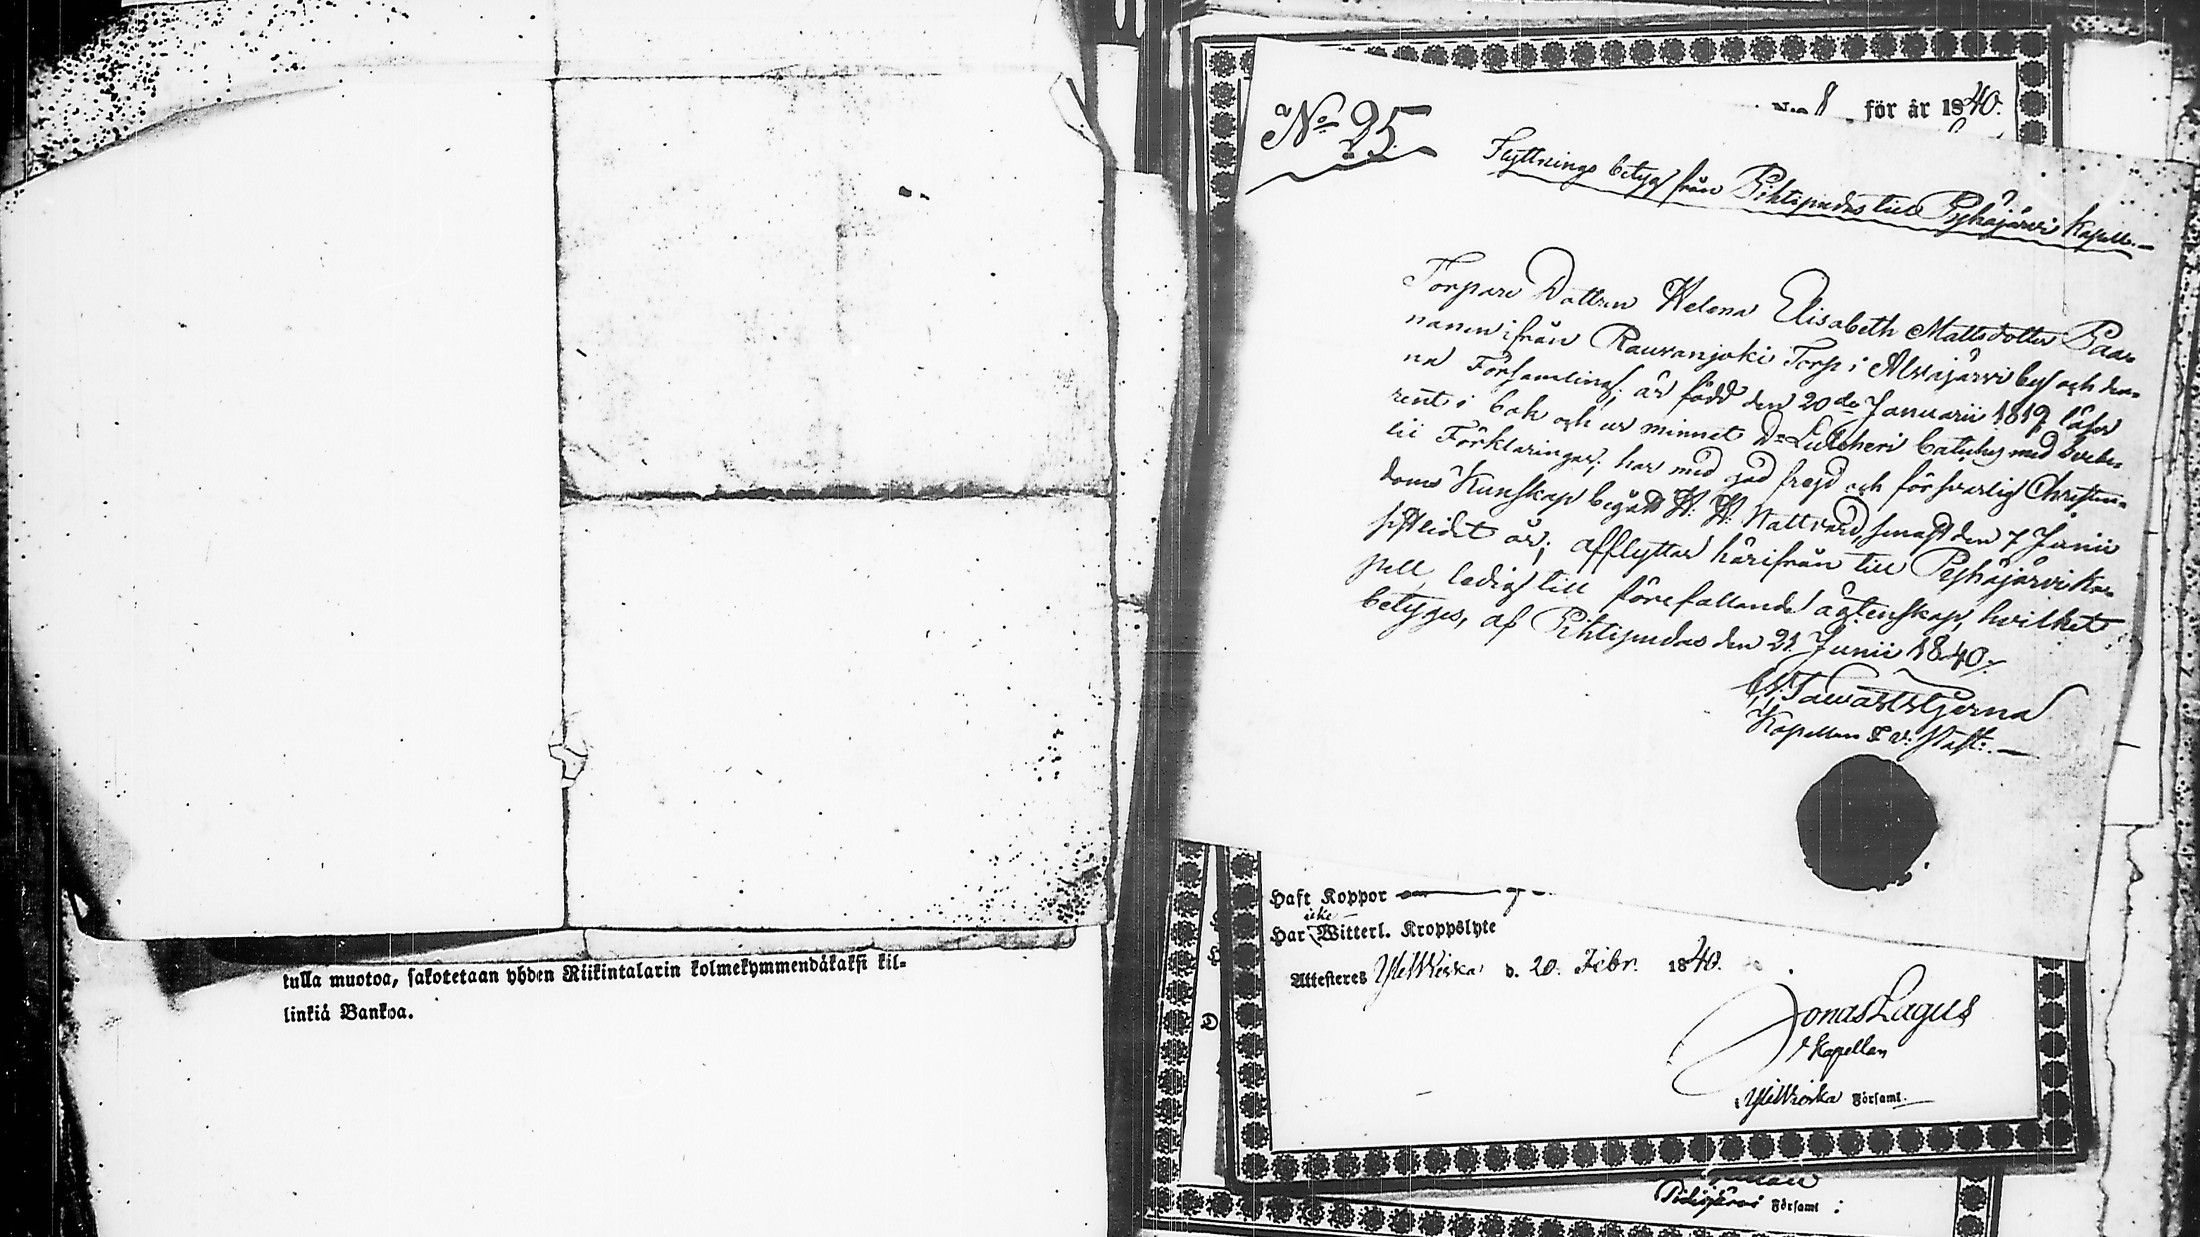 tulla muotoa, sakotetaan yhden Riikintalarin kolmekymmendäkaksi kil-
linkiä Bankoa.
No 8 för år 1840.
No 25.
Flyttnings betyg från Pihtipudas till Pyhäjärvi Kapell.
Torpare Dottren Helena Elisabeth Mattsdotter Paa-
nanen ifrån Rauvanjoki Torp i Alvajärvi by och den-
na Församling, är född den 20de Januarii 1819, läser
rent i bok och ur minnet Dr Lutheri Catches med Svebe-
lii Förklaringar; har med god frejd och försvarlig Christen-
doms Kunskap begått H. H. Nattvard, senast den 7 Junii
sistledit år; afflyttar härifrån till Pyhäjärvi Ka-
pell, ledig till förefallande ägtenskap, hvilket
betyges, af Pihtipudas den 21 Junii 1840.
Tawaststjerna
Kapellan & v. Past.
Haft Koppor
icke
Har Witterl. Kroppslyte
Attesteres YliWieska d. 20. Febr. 1840.
Jonas Lagus
Kapellan
i YliWieska Församl.
Pidisjärvi Församl